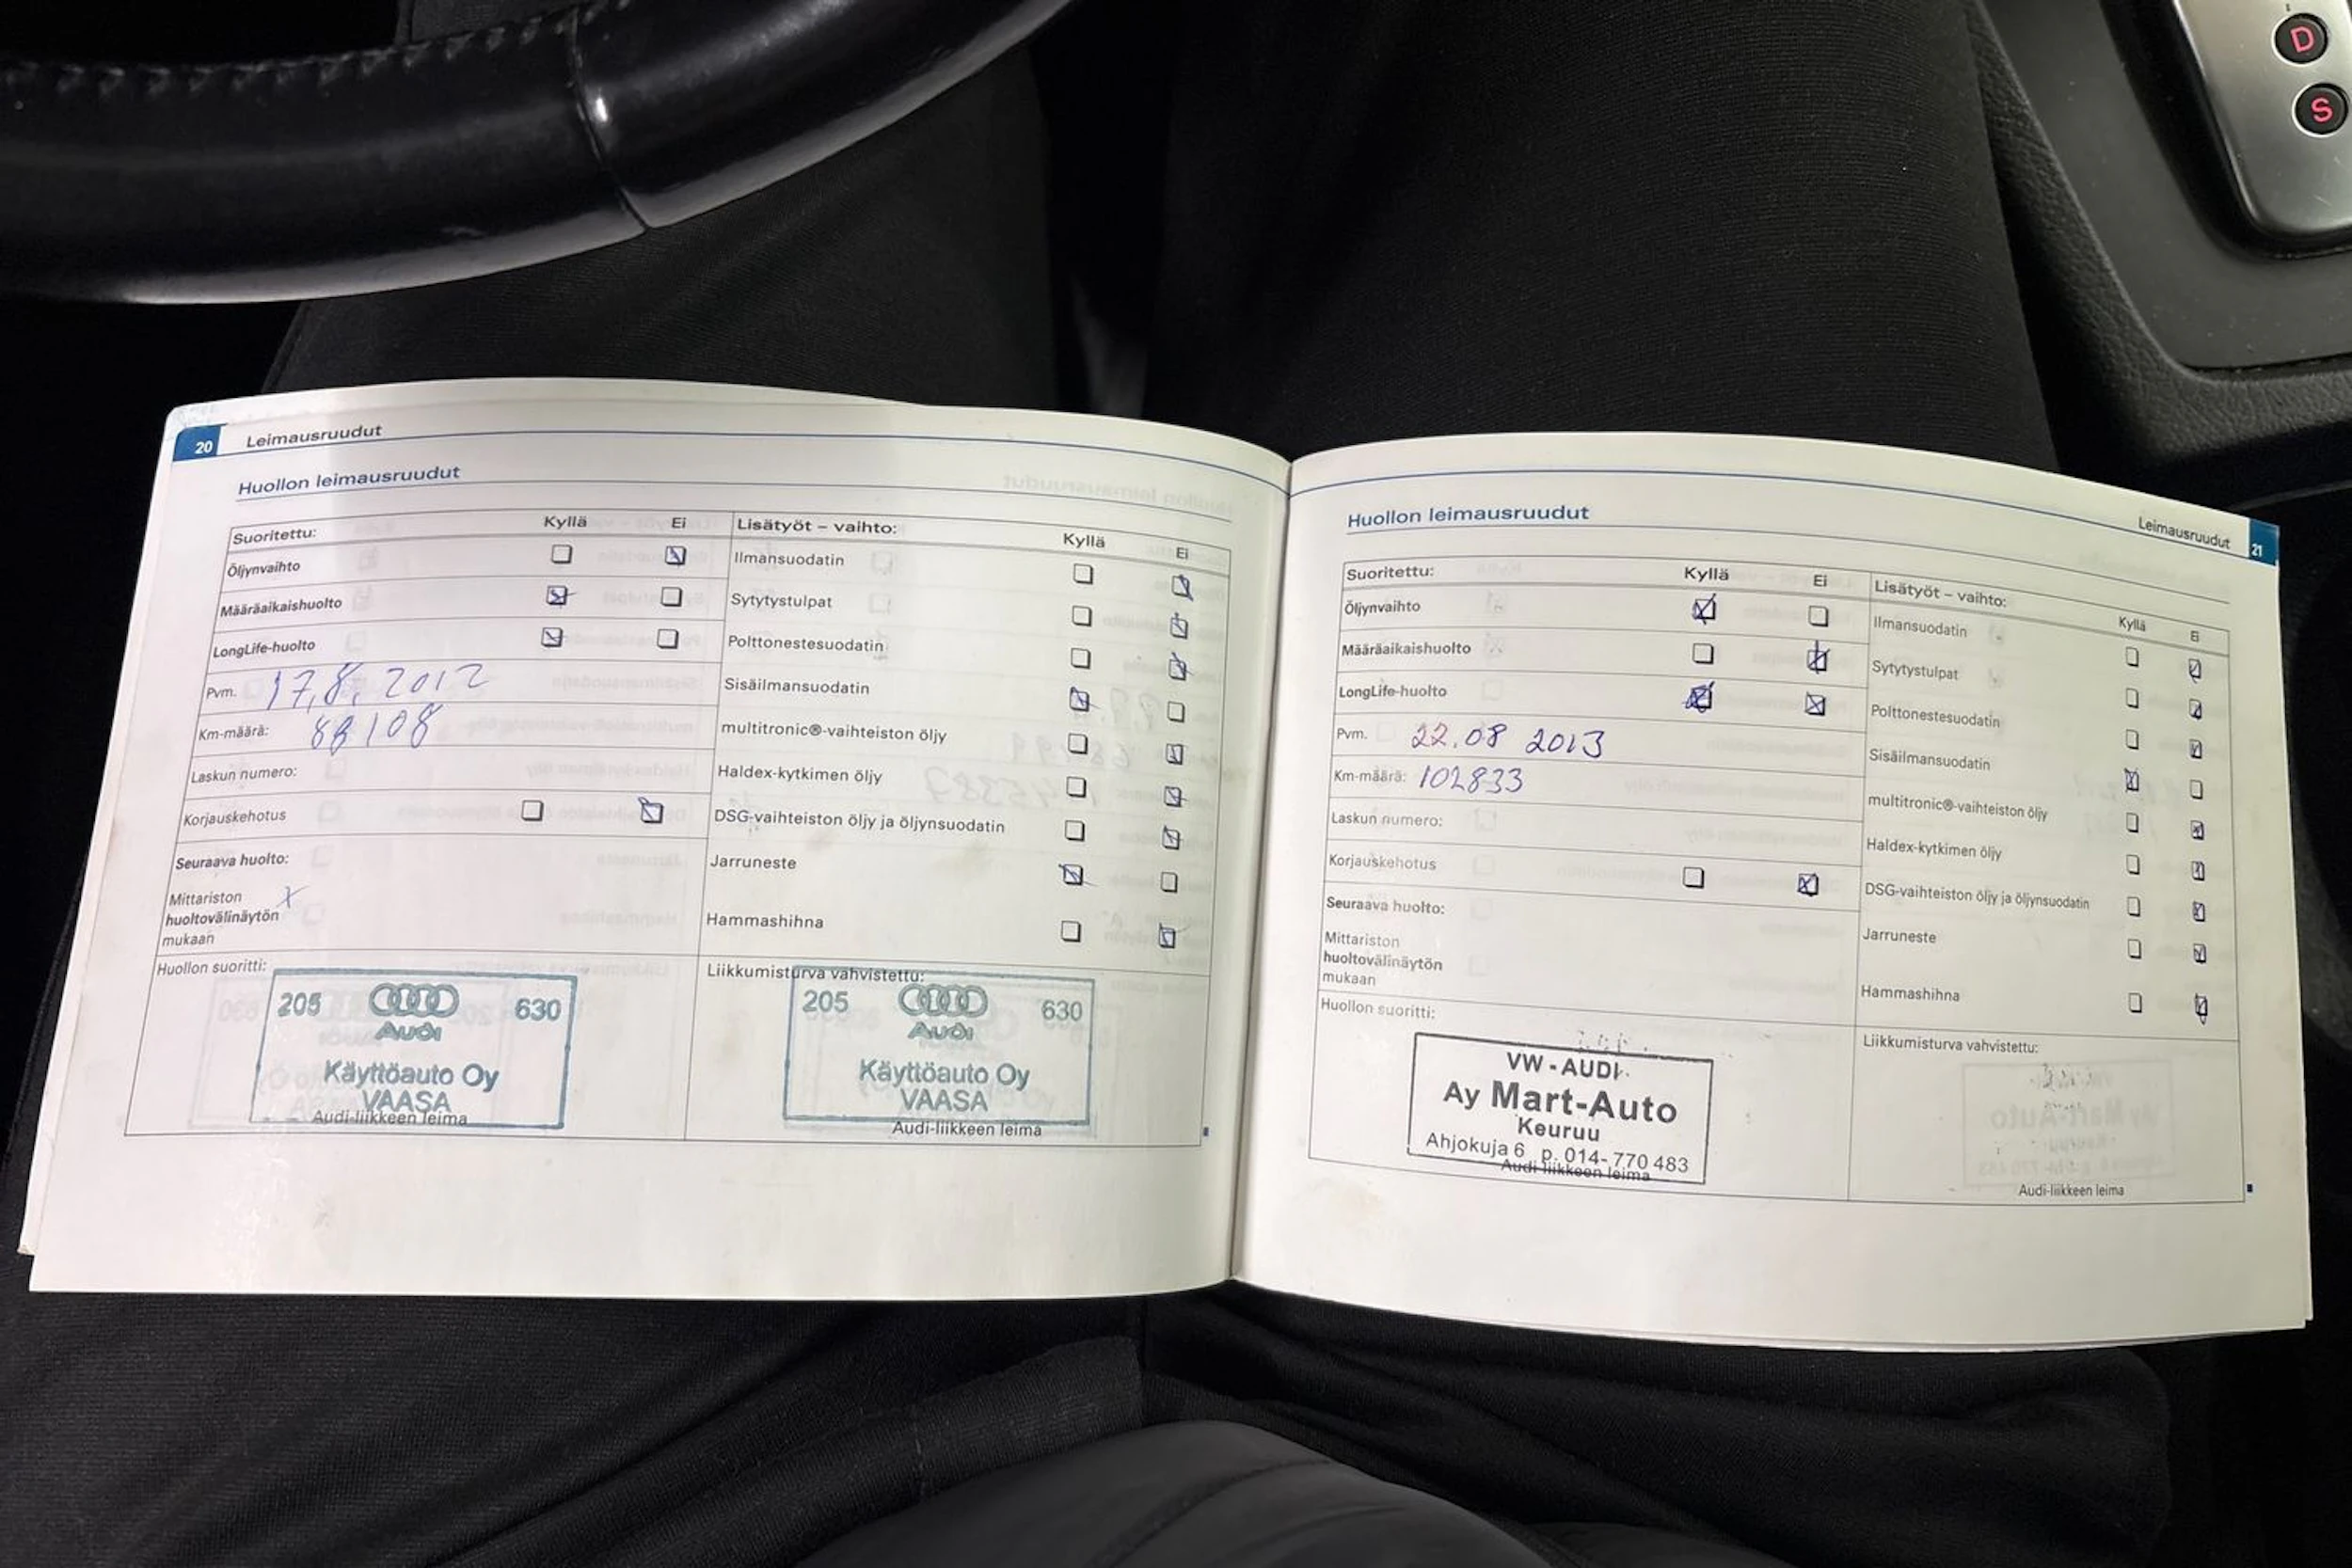 D
S
20 Leimausruudut
Huollon leimausruudut
Suoritettu: Kyllä Ei Lisätyöt – vaihto: Kyllä Ei
Öljynvaihto Ilmansuodatin
Määräaikaishuolto Sytytystulpat
LongLife-huolto Polttonestesuodatin
Pvm. 17.8.2012 Sisäilmansuodatin
Km-määrä: 88108 multitronic®-vaihteiston öljy
Laskun numero: Haldex-kytkimen öljy
Korjauskehotus DSG-vaihteiston öljy ja öljynsuodatin
Seuraava huolto: Jarruneste
Mittariston X
huoltovälinäytön Hammashihna
mukaan
Huollon suoritti: Liikkumisturva vahvistettu:
205 Audi 630
Käyttöauto Oy
VAASA
Audi-liikkeen leima
205 Audi 630
Käyttöauto Oy
VAASA
Audi-liikkeen leima
Leimausruudut 21
Huollon leimausruudut
Suoritettu: Kyllä Ei Lisätyöt – vaihto: Kyllä Ei
Öljynvaihto Ilmansuodatin
Määräaikaishuolto Sytytystulpat
LongLife-huolto Polttonestesuodatin
Pvm. 22.08 2013 Sisäilmansuodatin
Km-määrä: 102833 multitronic®-vaihteiston öljy
Laskun numero: Haldex-kytkimen öljy
Korjauskehotus DSG-vaihteiston öljy ja öljynsuodatin
Seuraava huolto: Jarruneste
Mittariston
huoltovälinäytön Hammashihna
mukaan
Huollon suoritti: Liikkumisturva vahvistettu:
VW - AUDI
Ay Mart-Auto
Keuruu
Ahjokuja 6 p. 014-770 483
Audi-liikkeen leima
Audi-liikkeen leima